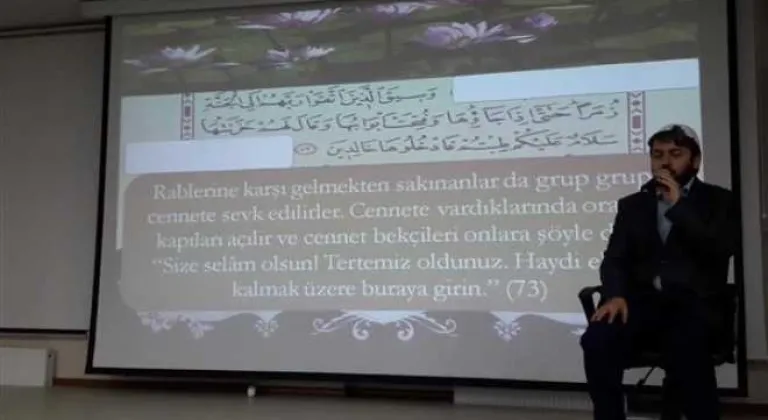 وَسِيقَ الَّذِينَ اتَّقَوْا رَبَّهُمْ اِلَى الْجَنَّةِ
زُمَرًا حَتَّى اِذَا جَاؤُهَا وَفُتِحَتْ اَبْوَابُهَا وَقَالَ لَهُمْ خَزَنَتُهَا
سَلَامٌ عَلَيْكُمْ طِبْتُمْ فَادْخُلُوهَا خَالِدِينَ
Rablerine karşı gelmekten sakınanlar da grup grup
cennete sevk edilirler. Cennete vardıklarında ora
kapıları açılır ve cennet bekçileri onlara şöyle d
“Size selâm olsun! Tertemiz oldunuz. Haydi e
kalmak üzere buraya girin.” (73)